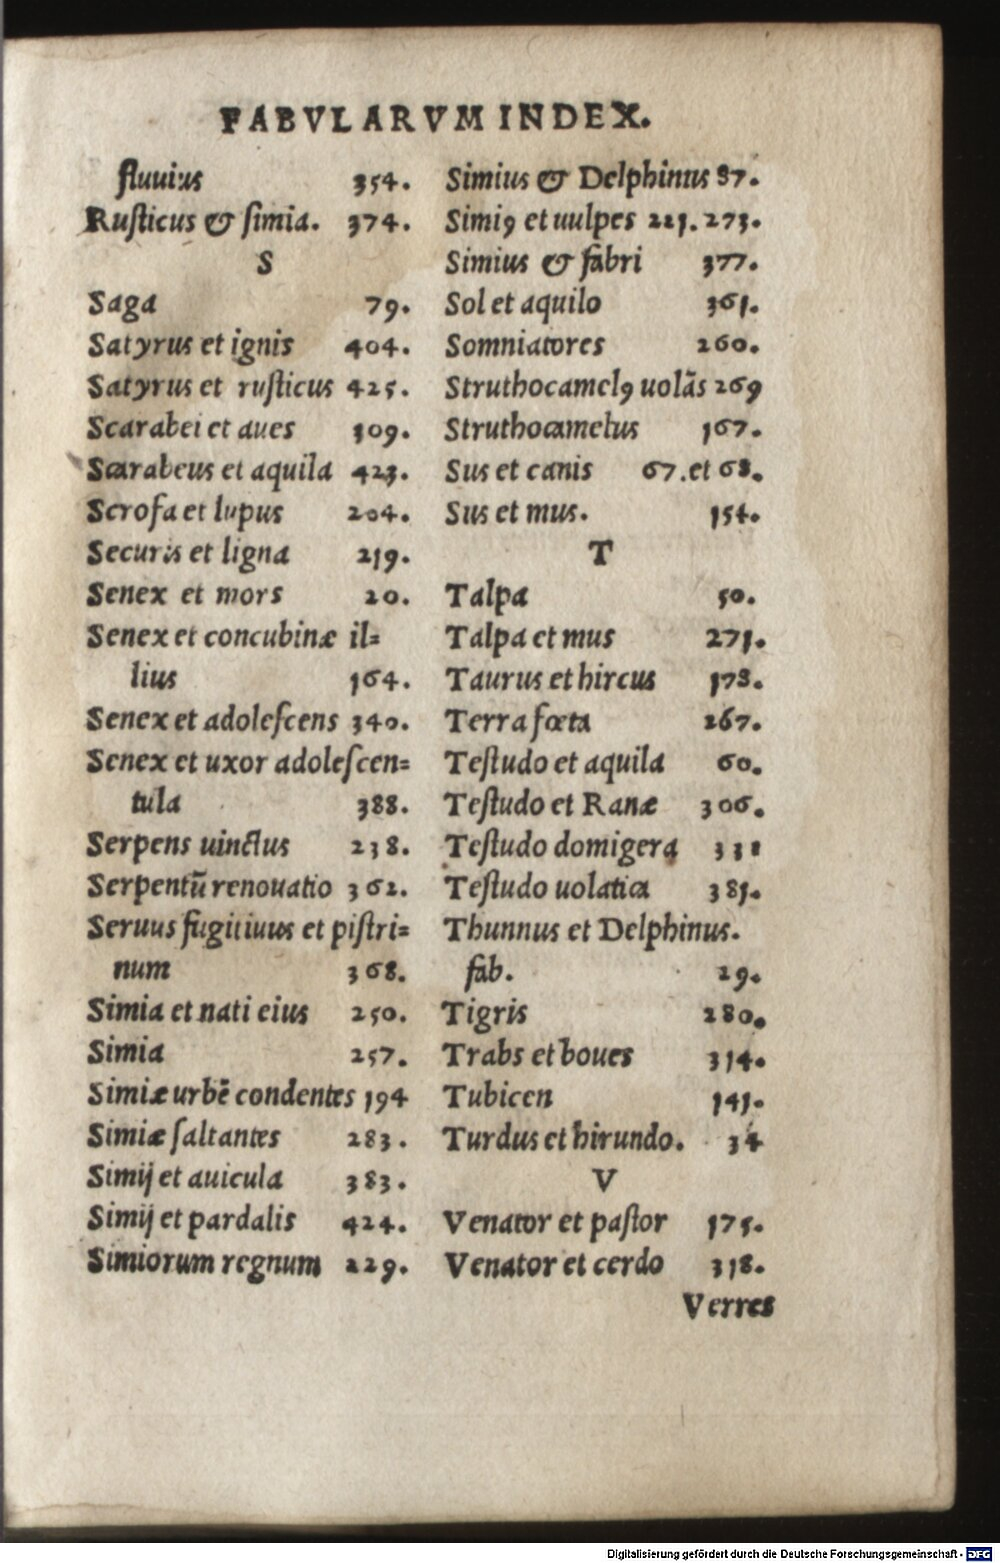 FABVLARVM INDEX.
fluuius 354.
Rusticus & simia. 374.
S
Saga 79.
Satyrus et ignis 404.
Satyrus et rusticus 425.
Scarabei et aues 309.
Scarabeus et aquila 423.
Scrofa et lupus 204.
Securis et ligna 219.
Senex et mors 20.
Senex et concubinæ il=
lius 164.
Senex et adolescens 340.
Senex et uxor adolescen=
tula 388.
Serpens uinctus 238.
Serpentū renouatio 362.
Seruus fugitiuus et pistri=
num 368.
Simia et nati eius 250.
Simia 257.
Simiæ urbē condentes 194
Simiæ saltantes 283.
Simij et auicula 383.
Simij et pardalis 424.
Simiorum regnum 229.
Simius & Delphinus 87.
Simiꝰ et uulpes 221. 273.
Simius & fabri 377.
Sol et aquilo 361.
Somniatores 260.
Struthocamelꝰ uolās 269
Struthocamelus 167.
Sus et canis 67. et 68.
Sus et mus. 154.
T
Talpa 50.
Talpa et mus 271.
Taurus et hircus 178.
Terra fœta 267.
Testudo et aquila 60.
Testudo et Ranæ 306.
Testudo domigera 331
Testudo uolatica 381.
Thunnus et Delphinus.
fab. 29.
Tigris 280.
Trabs et boues 314.
Tubicen 141.
Turdus et hirundo. 34
V
Venator et pastor 175.
Venator et cerdo 318.
Verres
Digitalisierung gefördert durch die Deutsche Forschungsgemeinschaft - DFG